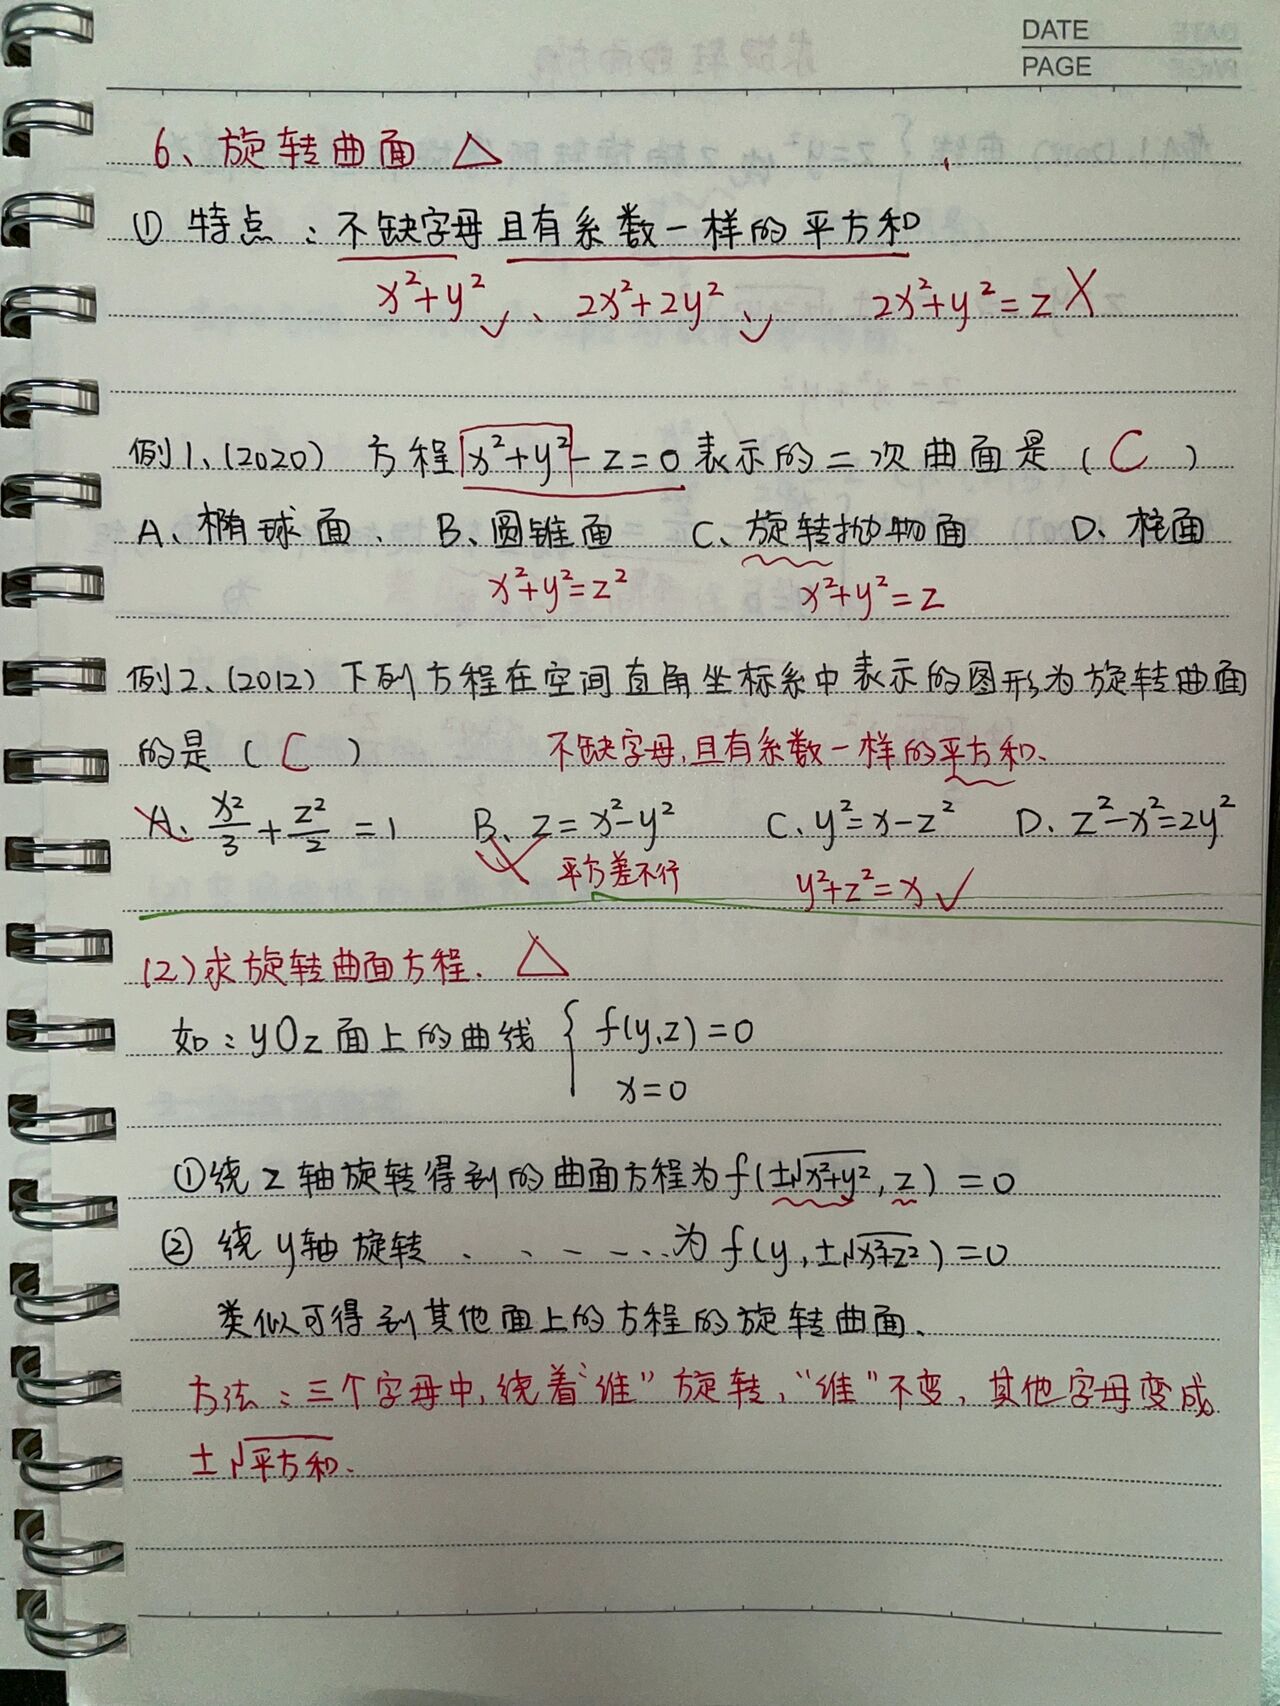 DATE
PAGE
6、旋转曲面 △
① 特点：不缺字母且有系数一样的平方和
x²+y² ✓、 2x²+2y² ✓、 2x²+y²=z X
例1、(2020) 方程 x²+y²-z=0 表示的二次曲面是（C）
A、椭球面、 B、圆锥面 C、旋转抛物面 D、柱面
x²+y²=z² x²+y²=z
例2、(2012) 下列方程在空间直角坐标系中表示的图形为旋转曲面
的是（C） 不缺字母,且有系数一样的平方和、
A、x²/3+z²/2=1 B、z=x²-y² C、y²=x-z² D、z²-x²=2y²
平方差不行 y²+z²=x ✓
(2)求旋转曲面方程. △
如：yOz面上的曲线 { f(y,z)=0
x=0
①绕z轴旋转得到的曲面方程为f(±√x²+y², z)=0
② 绕y轴旋转 ...... 为f(y,±√x²+z²)=0
类似可得到其他面上的方程的旋转曲面、
方法：三个字母中,绕着“谁”旋转,“谁”不变,其他字母变成
±√平方和.